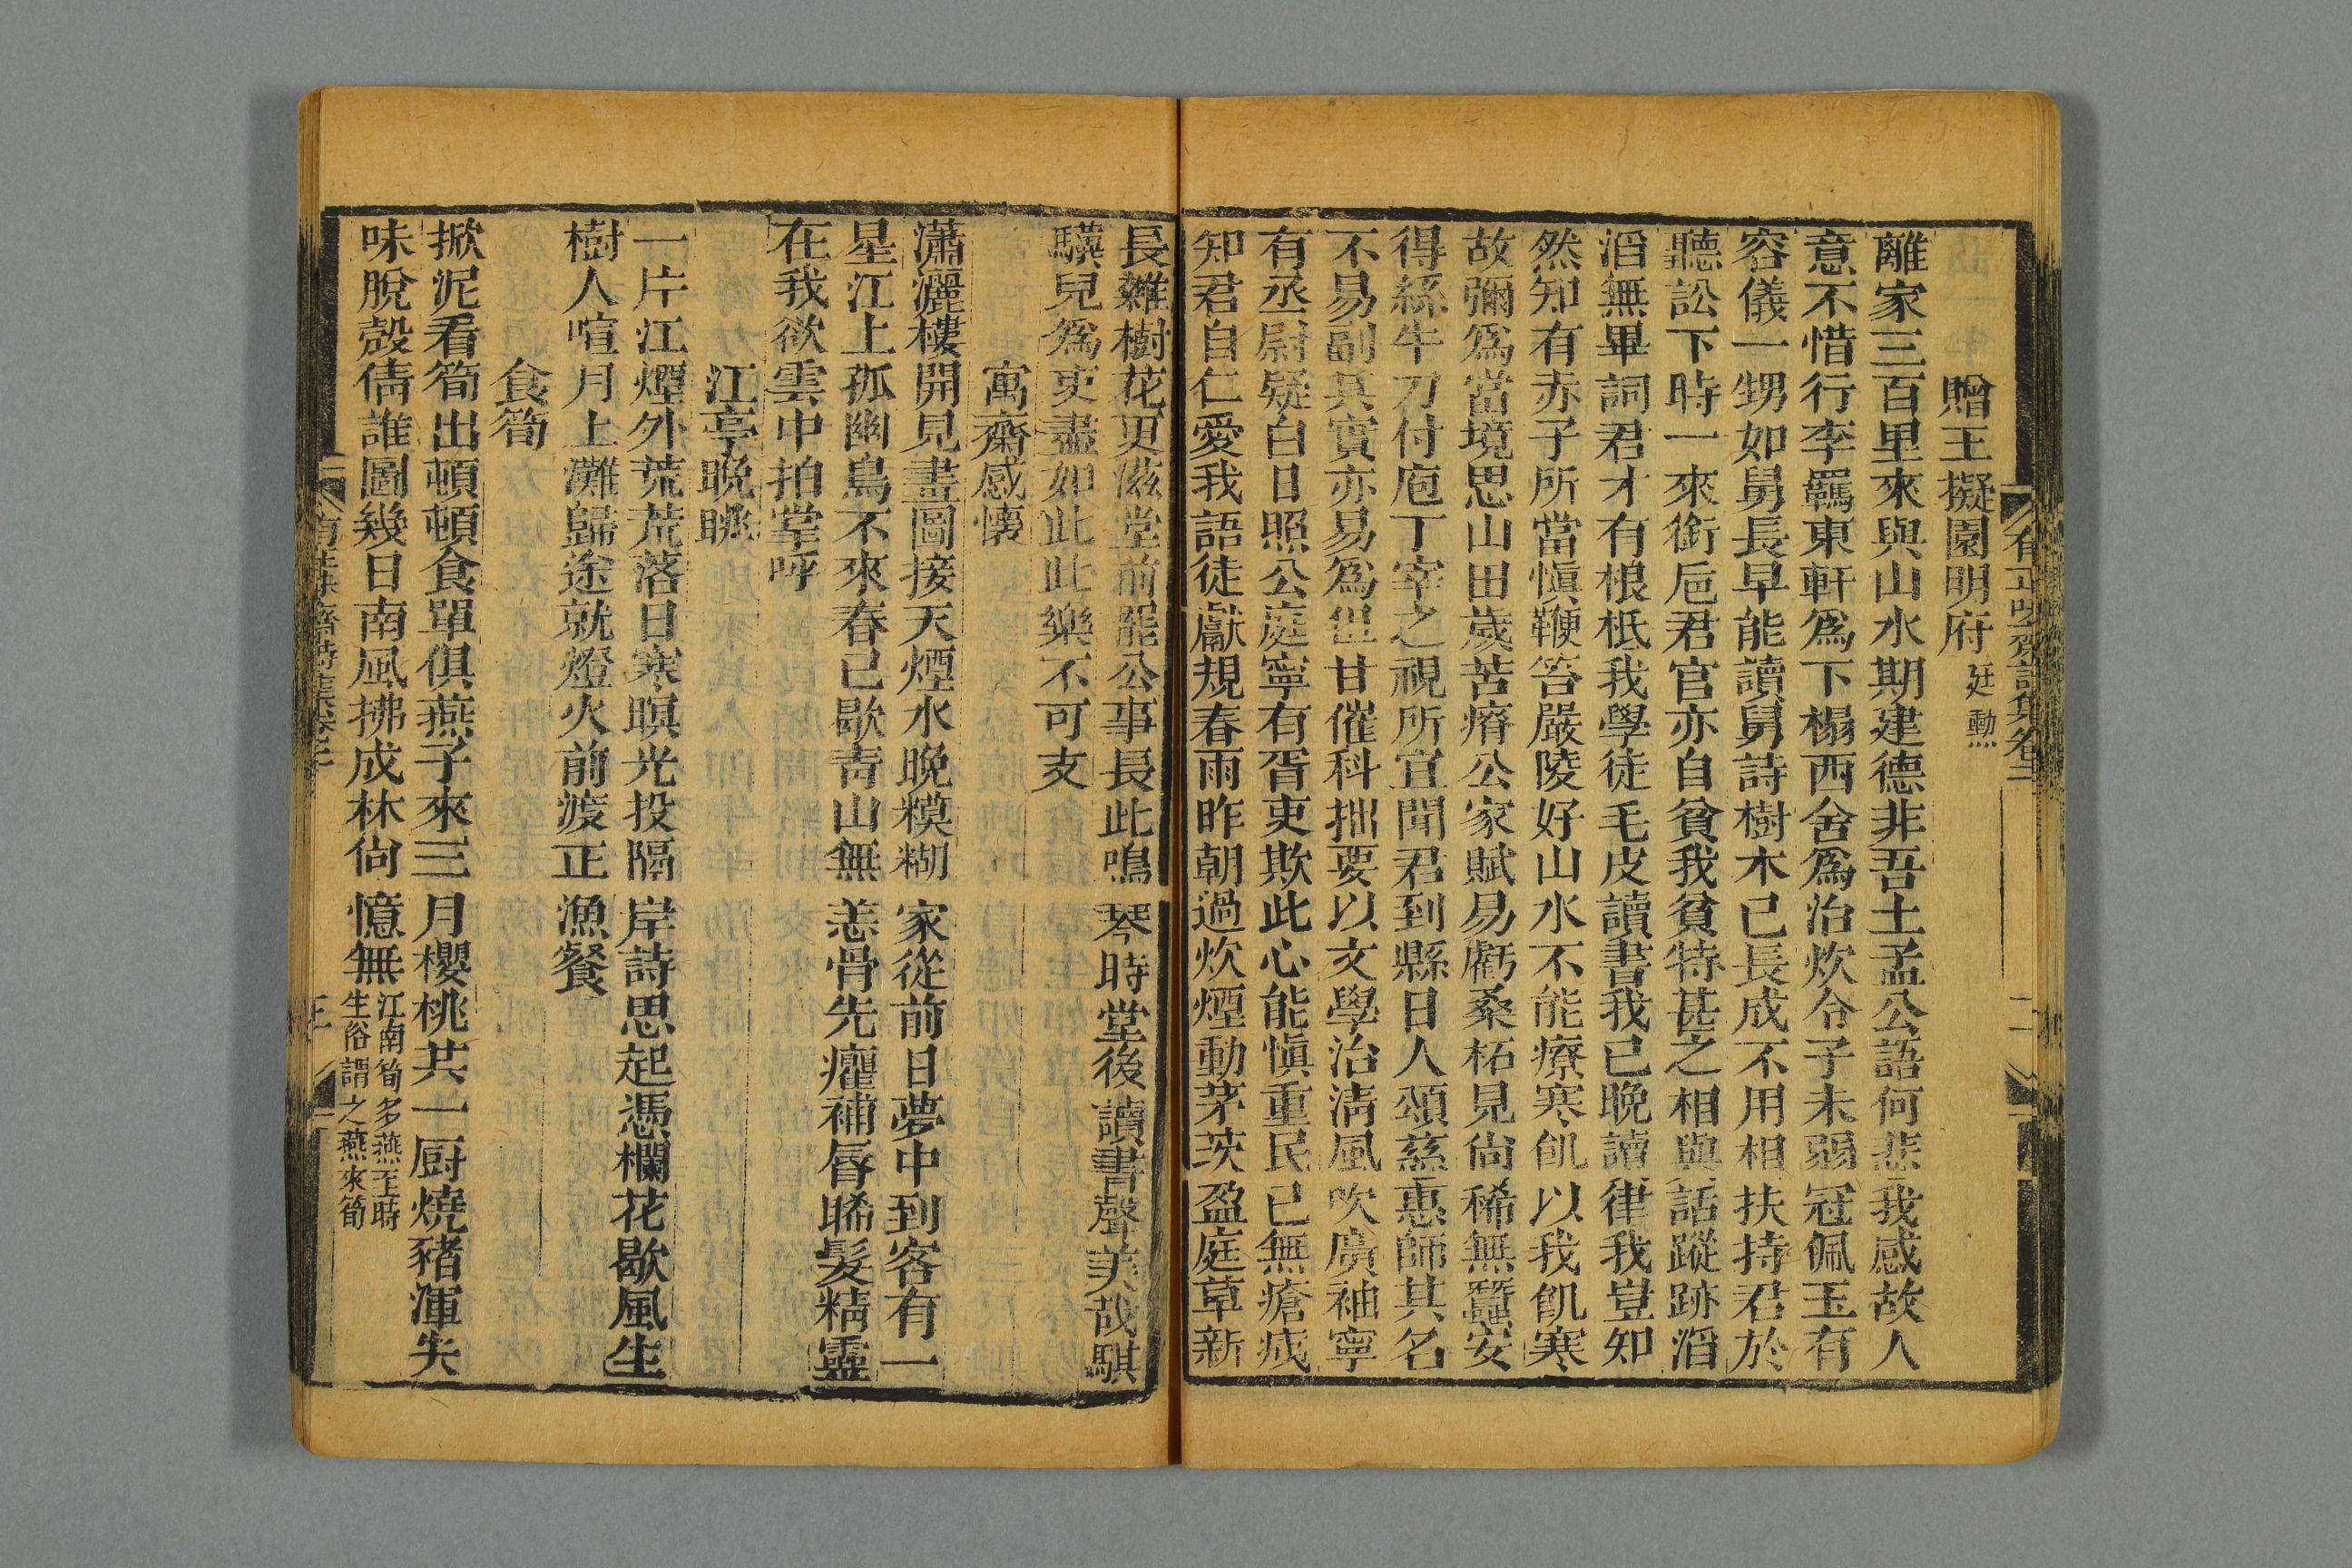 有正味齋詩集卷二
二
贈王擬園明府廷勳
離家三百里來與山水期建德非吾土孟公語何悲我感故人
意不惜行李羈東軒爲下榻西舍爲治炊令子未弱冠佩玉有
容儀一甥如舅長早能讀舅詩樹木已長成不用相扶持君於
聽訟下時一來銜巵君官亦自貧我貧特甚之相與話蹤跡滔
滔無畢詞君才有根柢我學徒毛皮讀書我已晚讀律我豈知
然知有赤子所當愼鞭笞嚴陵好山水不能療寒飢以我飢寒
故彌爲當境思山田歲苦瘠公家賦易虧桑柘見尙稀無蠶安
得絲牛刀付庖丁宰之視所宜聞君到縣日人頌慈惠師其名
不易副其實亦易爲但甘催科拙要以文學治淸風吹廣袖寧
有丞尉疑白日照公庭寧有胥吏欺此心能愼重民已無瘡痍
知君自仁愛我語徒獻規春雨昨朝過炊煙動茅茨盈庭草新
長雜樹花更滋堂前罷公事長此鳴琴時堂後讀書聲美哉騏
驥兒爲吏盡如此此樂不可支
寓齋感懷
瀟灑樓開見畫圖接天煙水晚糢糊家從前日夢中到客有一
星江上孤幽鳥不來春已歇靑山無恙骨先癯補脣晞髮精靈
在我欲雲中拍掌呼
江亭晚眺
一片江煙外荒荒落日寒暝光投隔岸詩思起憑欄花歇風生
樹人喧月上灘歸途就燈火前渡正漁餐
食筍
掀泥看筍出頓頓食單俱燕子來三月櫻桃共一厨燒豬渾失
味脫殼倩誰圖幾日南風拂成林尙憶無江南筍多燕至時
生俗謂之燕來筍
有正味齋詩集卷二